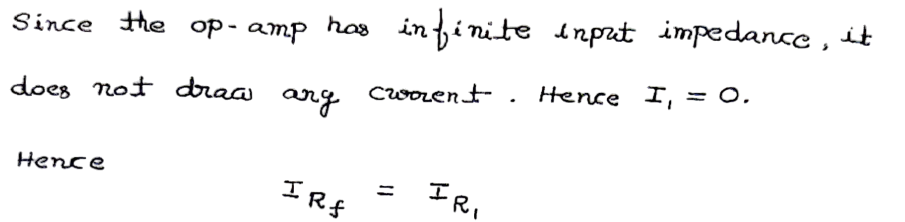 Since the op-amp has infinite input impedance, it
does not draw any current. Hence I₁ = 0.
Hence
I_Rf = I_R₁